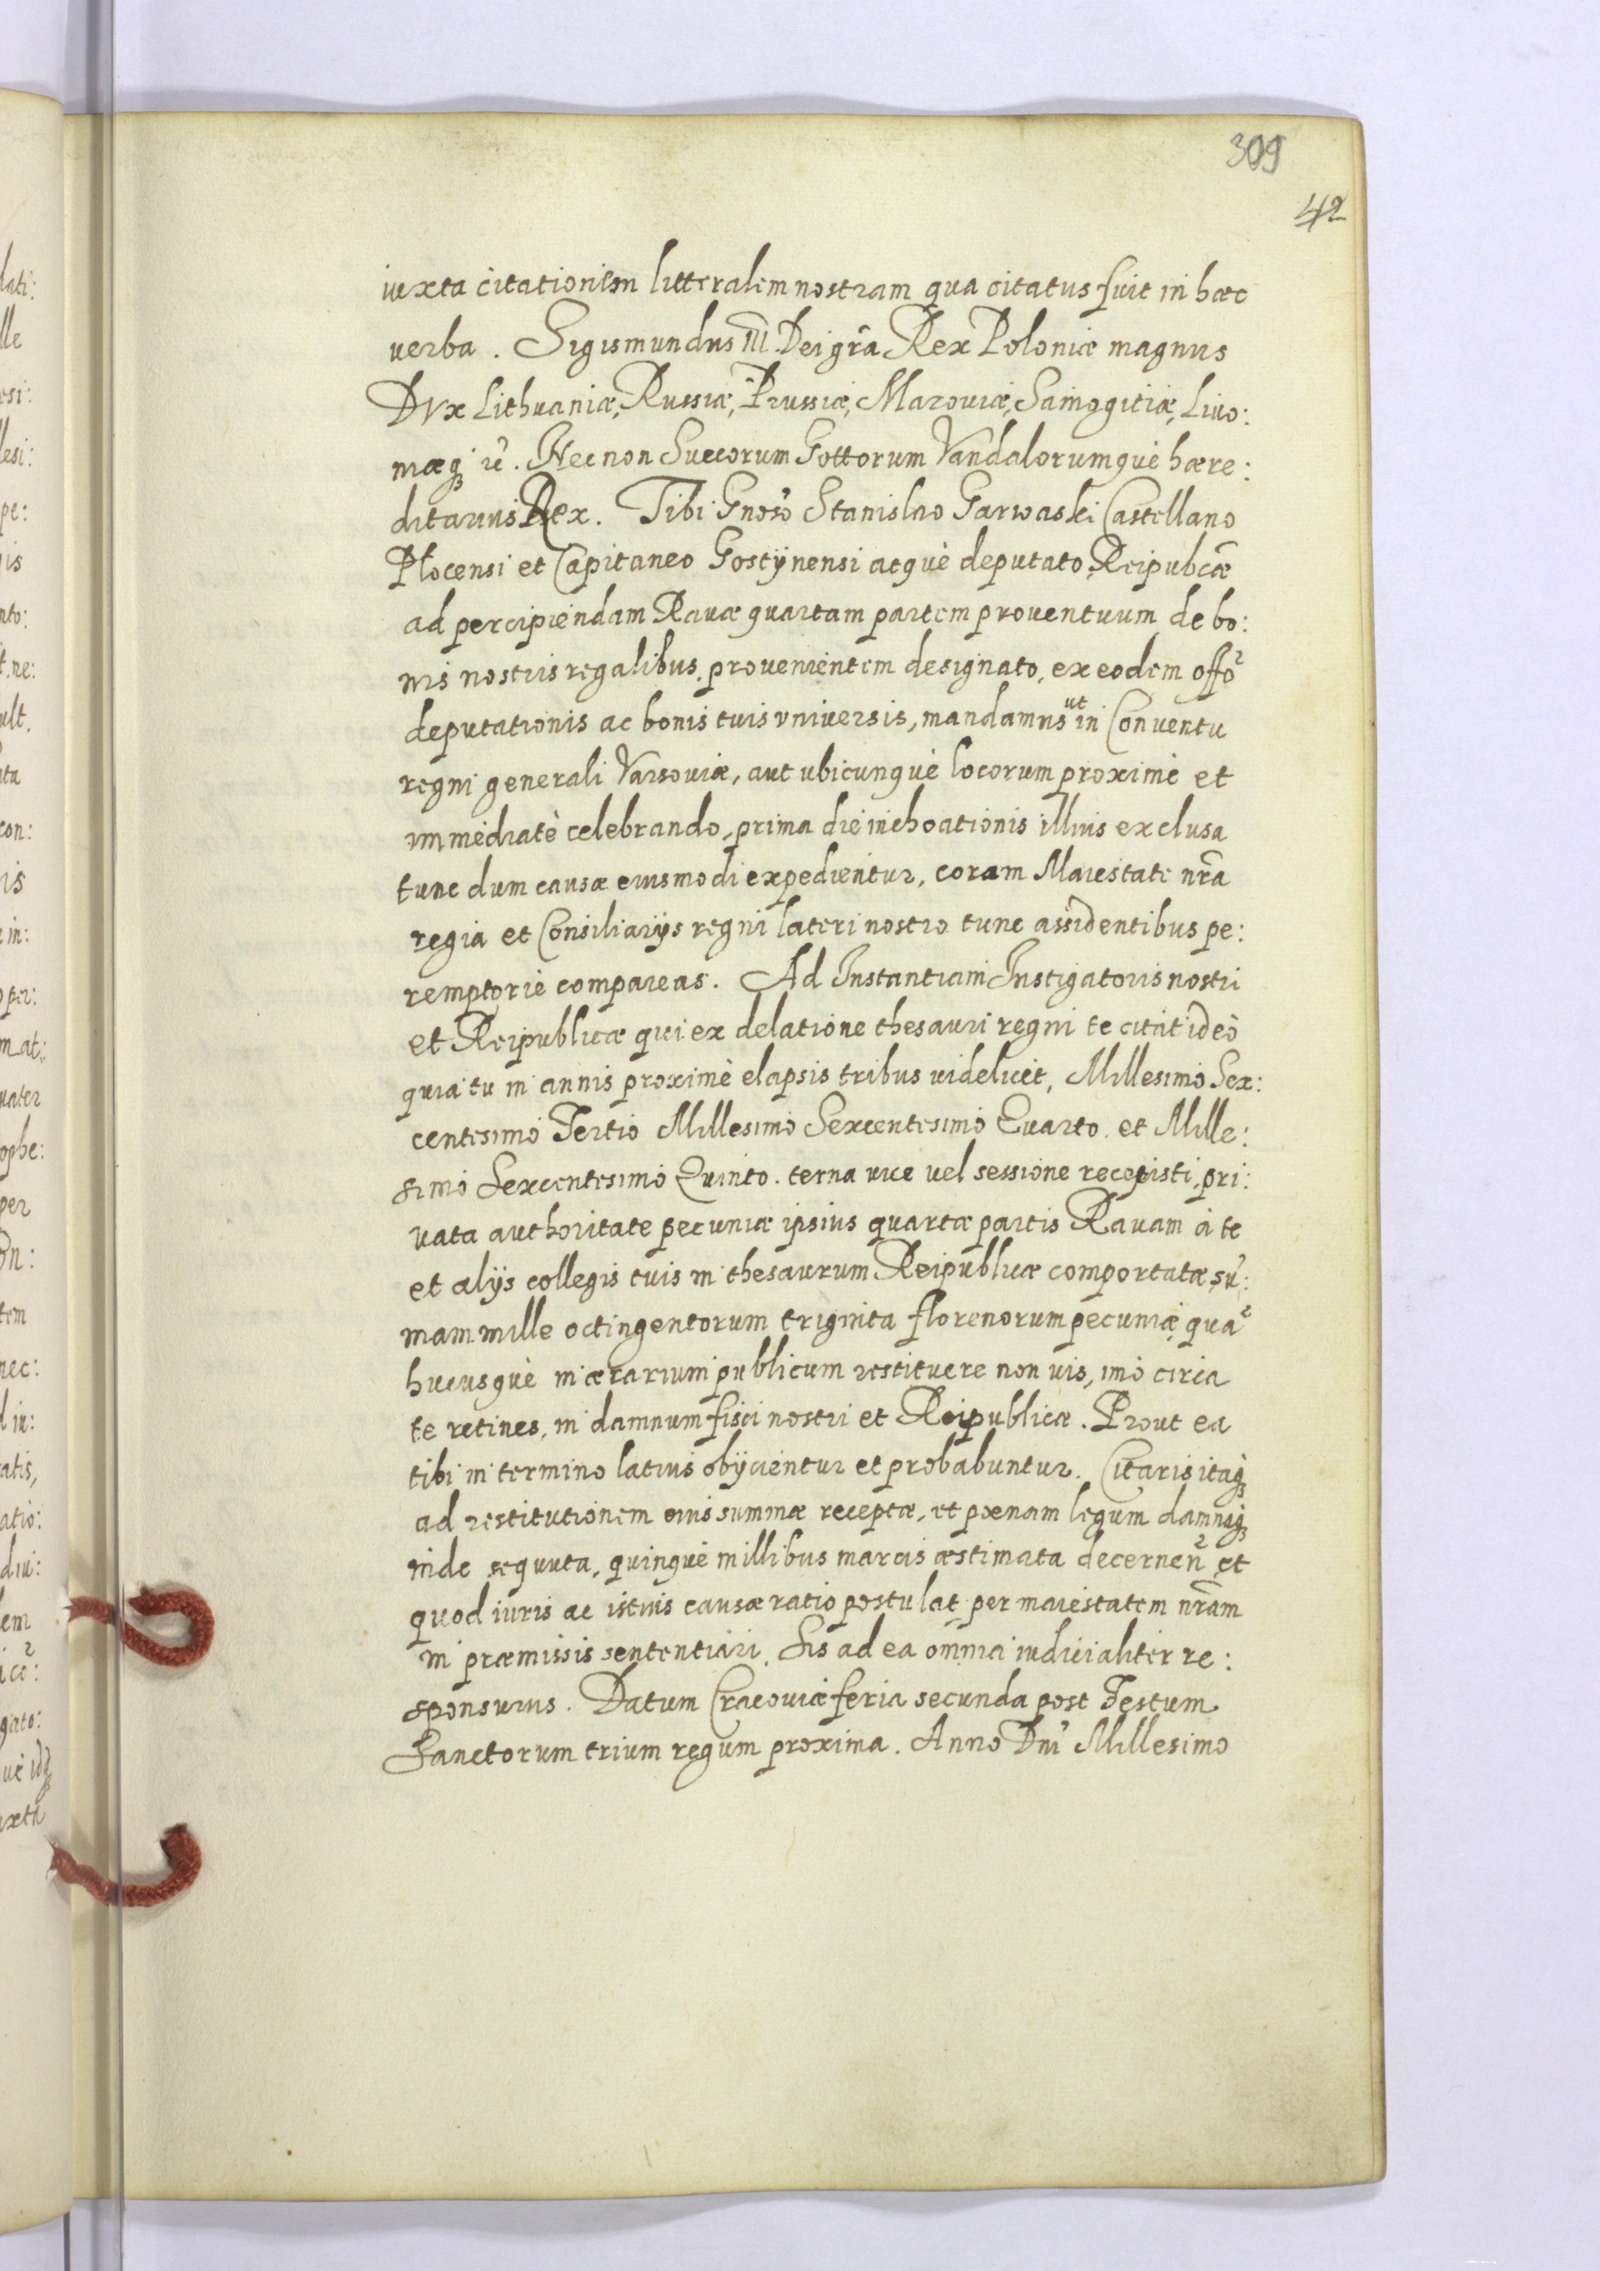 309
42
iuxta citationem litteralem nostram qua citatus fuit in hæc
verba. Sigismundus III Dei grã Rex Poloniæ magnus
Dux Lithuaniæ, Russiæ, Prussiæ, Mazouiæ, Samogitiæ, Liuo:
niæq3 &c. Necnon Suecorum Gottorum Vandalorumque hære:
ditarius Rex. Tibi Gnoso Stanislao Garwaski Castellano
Plocensi et Capitaneo Gostÿnensi atquè deputato Reipubcæ
ad percipiendam Rauæ quartam partem prouentuum de bo:
nis nostris regalibus prouenientem designato, ex eodem offo
deputationis ac bonis tuis vniuersis, mandamus ut in Conuentu
regni generali Varsouiæ, aut ubicunquè locorum proximè et
immediatè celebrando, prima die inchoationis illius exclusa
tunc dum causæ eiusmodi expedientur, coram Maiestate nrã
regia et Consiliarÿs regni lateri nostro tunc assidentibus pe:
remptoriè compareas. Ad Instantiam Instigatoris nostri
et Reipublicæ qui ex delatione thesauri regni te citat ideò
quia tu in annis proximè elapsis tribus uidelicèt, Millesimo Sex:
centesimo Tertio Millesimo Sexcentesimo Quarto et Mille:
simo Sexcentesimo Quinto. terna uice uel sessione recepisti, pri:
uata authoritate pecuniæ ipsius quartæ partis Rauam à te
et alÿs collegis tuis in thesaurum Reipublicæ comportatæ sũ:
mam mille octingentorum triginta florenorum pecuniæ, qua
hucusquè in ærarium publicum restituere non uis, imò circa
te retines, in damnum fisci nostri et Reipublicæ. Prout ea
tibi in termino latius obÿcientur et probabuntur. Citaris itaq3
ad restitutionem eius summæ receptæ, et pœnam legum damnaq3
inde sequuta, quinquè millibus marcis æstimata decernen et
quod iuris ac istius causæ ratio postulat per maiestatem nrãm
in præmissis sententiari. Sis ad ea omnia iudicialiter re:
sponsurus. Datum Cracouiæ feria secunda post Festum
Sanctorum trium regum proxima. Anno Dni Millesimo